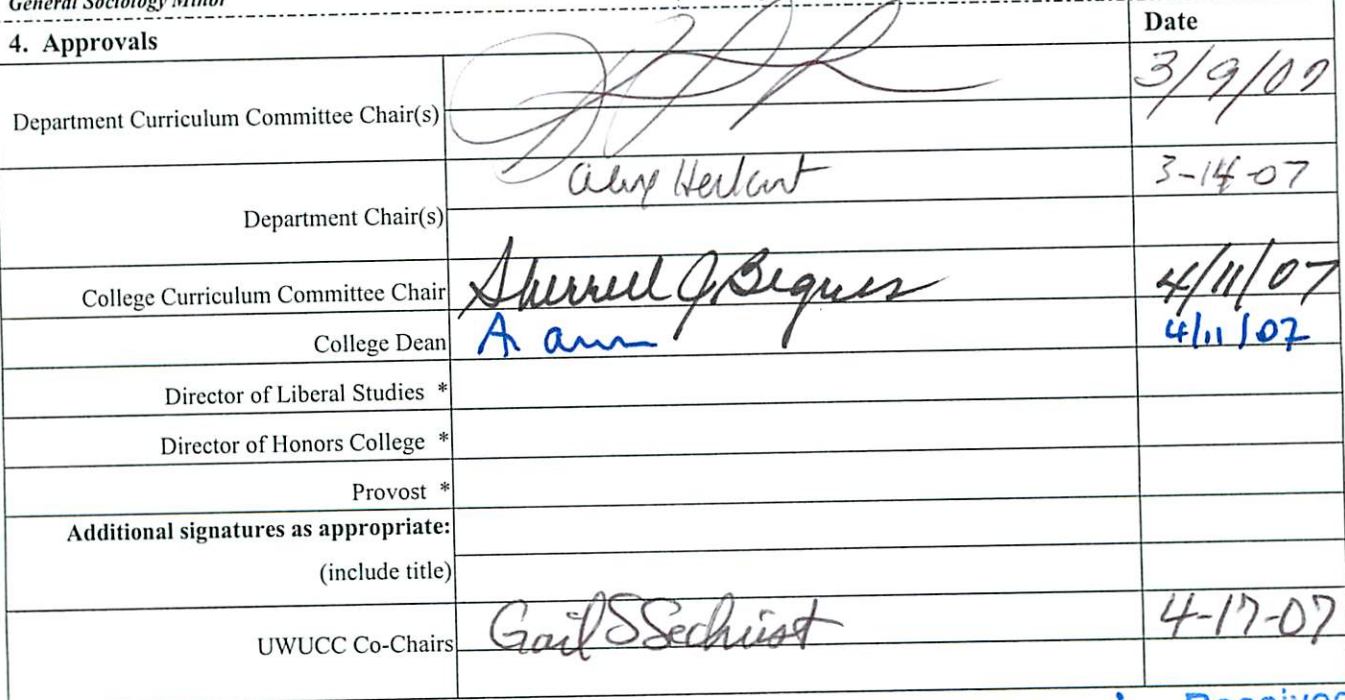 General Sociology Minor
4. Approvals Date
Department Curriculum Committee Chair(s) 3/9/07
Department Chair(s) 3-14-07
College Curriculum Committee Chair Sherrill J. 4/11/07
College Dean 4/11/07
Director of Liberal Studies *
Director of Honors College *
Provost *
Additional signatures as appropriate:
(include title)
UWUCC Co-Chairs Gail S Sechrist 4-17-07
Received